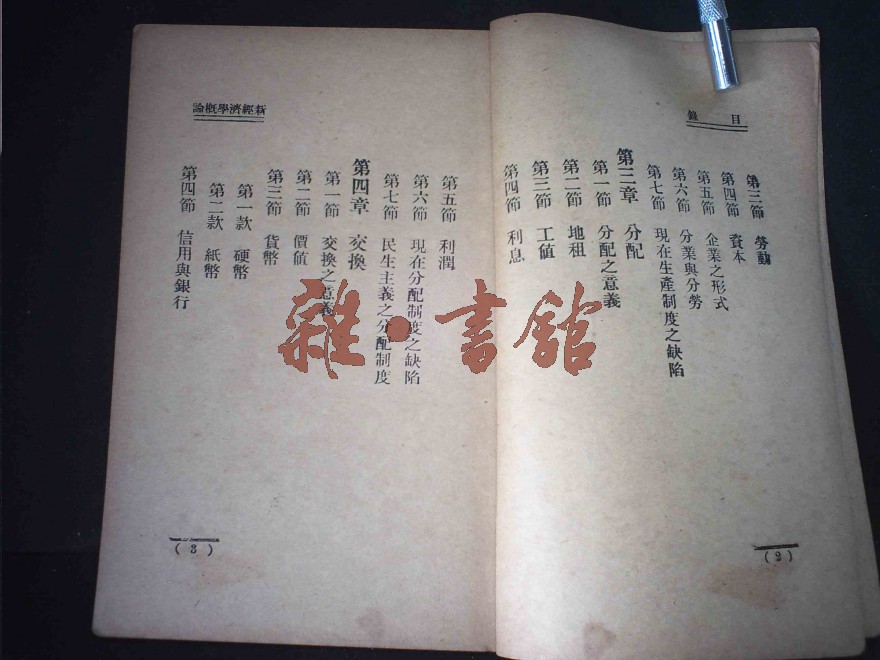 目錄
第三節　勞動
第四節　資本
第五節　企業之形式
第六節　分業與分勞
第七節　現在生產制度之缺陷
第三章　分配
第一節　分配之意義
第二節　地租
第三節　工值
第四節　利息
(2)
新經濟學概論
第五節　利潤
第六節　現在分配制度之缺陷
第七節　民生主義之分配制度
第四章　交換
第一節　交換之意義
第二節　價值
第三節　貨幣
第一款　硬幣
第二款　紙幣
第四節　信用與銀行
(3)
雜·書館